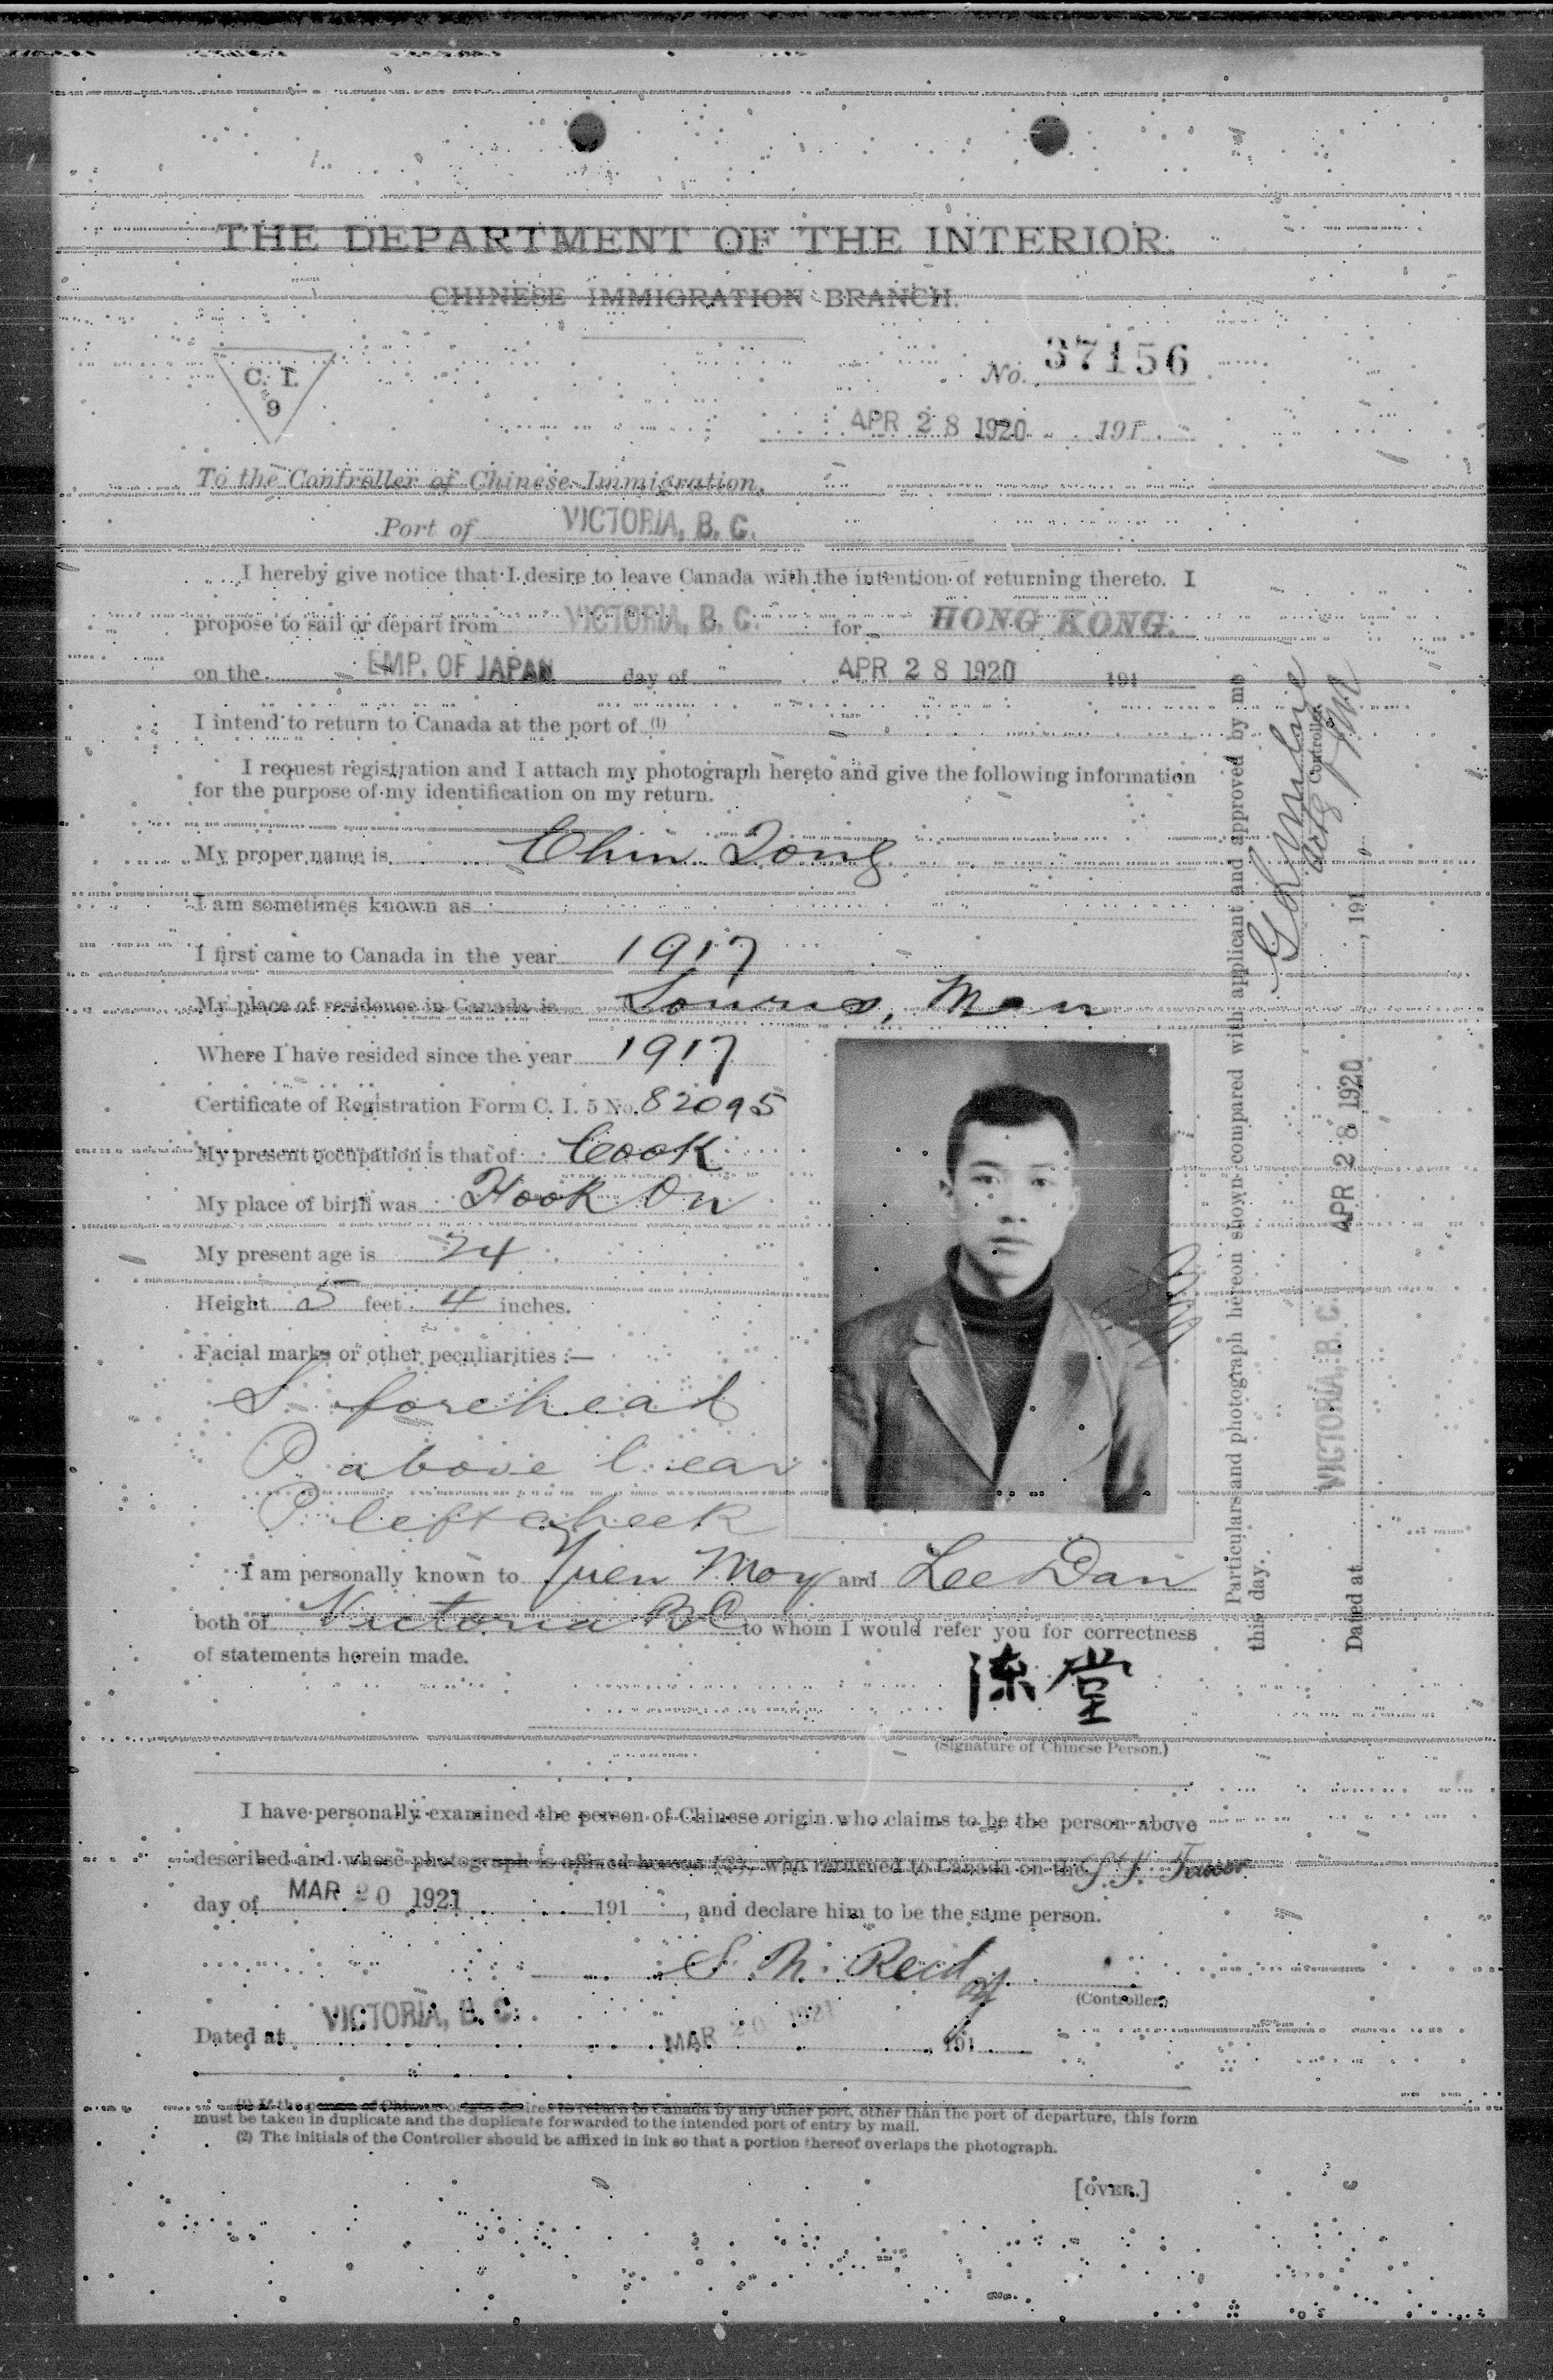 THE DEPARTMENT OF THE INTERIOR.
CHINESE IMMIGRATION BRANCH.
C. I.
9
No. 37156
APR 28 1920 191
To the Controller of Chinese Immigration,
Port of VICTORIA, B. C.
I hereby give notice that I desire to leave Canada with the intention of returning thereto. I
propose to sail or depart from VICTORIA, B. C. for HONG KONG.
on the EMP. OF JAPAN day of APR 28 1920 191
I intend to return to Canada at the port of (1)
I request registration and I attach my photograph hereto and give the following information
for the purpose of my identification on my return.
My proper name is Chin Tong
I am sometimes known as
I first came to Canada in the year 1917
My place of residence in Canada is Souris, Man
Where I have resided since the year 1917
Certificate of Registration Form C. I. 5 No. 82095
My present occupation is that of Cook
My place of birth was Hook On
My present age is 24
Height 5 feet 4 inches.
Facial marks or other peculiarities :—
S forehead
P above l. ear
P left cheek
I am personally known to Yuen Moy and Lee Dan
both of Victoria BC to whom I would refer you for correctness
of statements herein made.
陈堂
(Signature of Chinese Person.)
I have personally examined the person of Chinese origin who claims to be the person above
described and whose photograph is affixed hereon (2), who returned to Canada on the
day of MAR 20 1921 191 , and declare him to be the same person.
S. N. Reid
(Controller)
Dated at VICTORIA, B. C. MAR 20 1921 191
(1) If the person of Chinese origin desires to return to Canada by any other port, other than the port of departure, this form
must be taken in duplicate and the duplicate forwarded to the intended port of entry by mail.
(2) The initials of the Controller should be affixed in ink so that a portion thereof overlaps the photograph.
[OVER.]
Particulars and photograph hereon shown compared with applicant and approved by me
this day.
Controller
Dated at VICTORIA, B. C. APR 28 1920 , 191